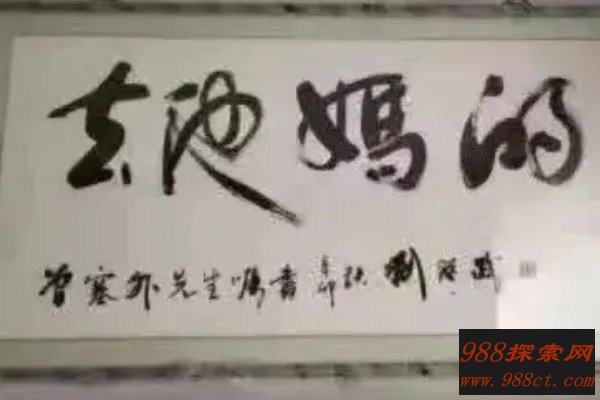 去他媽的
曾塞外先生嘱書 辛卯秋 劉洪彪
988探索网
www.988ct.com